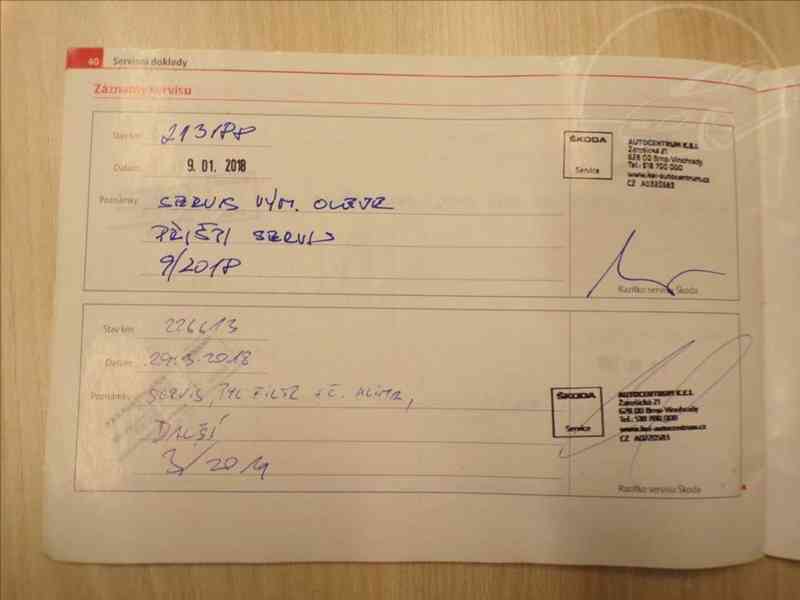 40 Servisní doklady
Záznamy servisu
Stav km:
Datum: 9. 01. 2018
Poznámky: SERVIS VÝM. OLEJE
PŘÍŠTÍ SERVIS
9/2018
ŠKODA
Service
AUTOCENTRUM K.E.I.
Žarošická 21
628 00 Brno-Vinohrady
www.kei-autocentrum.cz
Razítko servisu Škoda
Stav km: 226613
Datum:
Poznámky: SERVIS,
DALŠÍ
3/2019
ŠKODA
Service
AUTOCENTRUM K.E.I.
Žarošická 21
628 00 Brno-Vinohrady
www.kei-autocentrum.cz
Razítko servisu Škoda